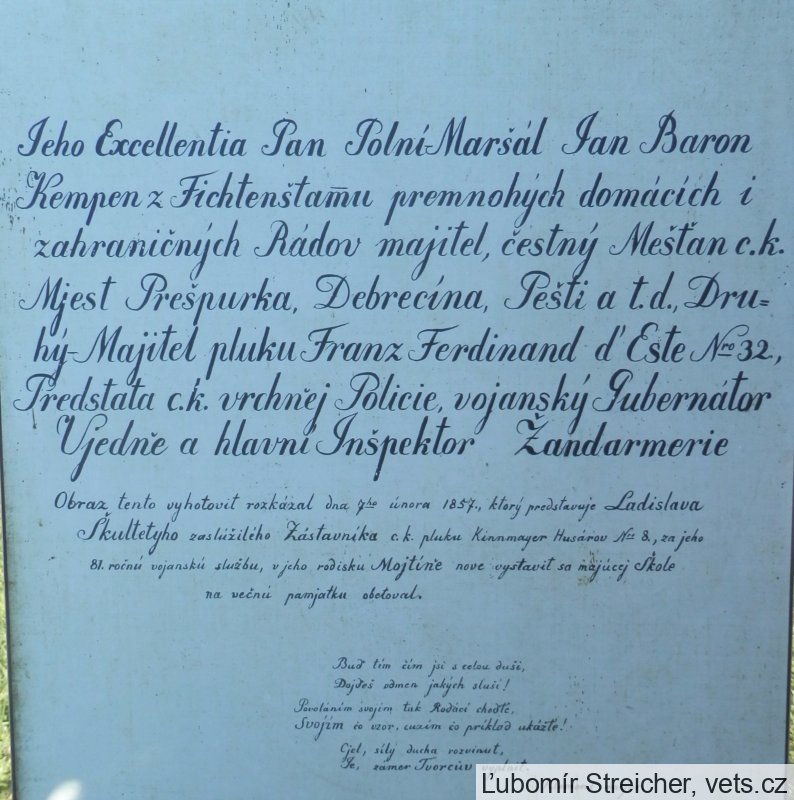 Jeho Excellentia Pan Polní-Maršál Jan Baron
Kempen z Fichtenštam̅u premnohých domácích i
zahraničných Rádov majitel, čestný Mešťan c.k.
Mjest Prešpurka, Debrecína, Pešti a t.d., Dru=
hý-Majitel pluku Franz Ferdinand ď Este Nro 32.,
Předstata c.k. vrchněj Policie, vojanský Gubernátor
Vjedně a hlavní Inšpektor Žandarmerie
Obraz tento vyhotovit rozkázal dna 7ho února 1857., ktorý predstavuje Ladislava
Škultetyho zaslúžilého Zástavníka c.k. pluku Kinnmayer Husárov Nro 8., za jeho
81. ročnú vojanskú službu, v jeho rodisku Mojtíně nove vystaviť sa majúcej Škole
na večnú pamjatku obetoval.
Buď tím čím jsi s celou duší,
Dojdeš odmen jakých sluší!
Povoláním svojím tak Rodáci choďte,
Svojím čo vzor, cuzím čo príklad ukážte!
Cjel, síly ducha rozvinut,
Je, zámer Tvorcův vyplnit.
Ľubomír Streicher, vets.cz